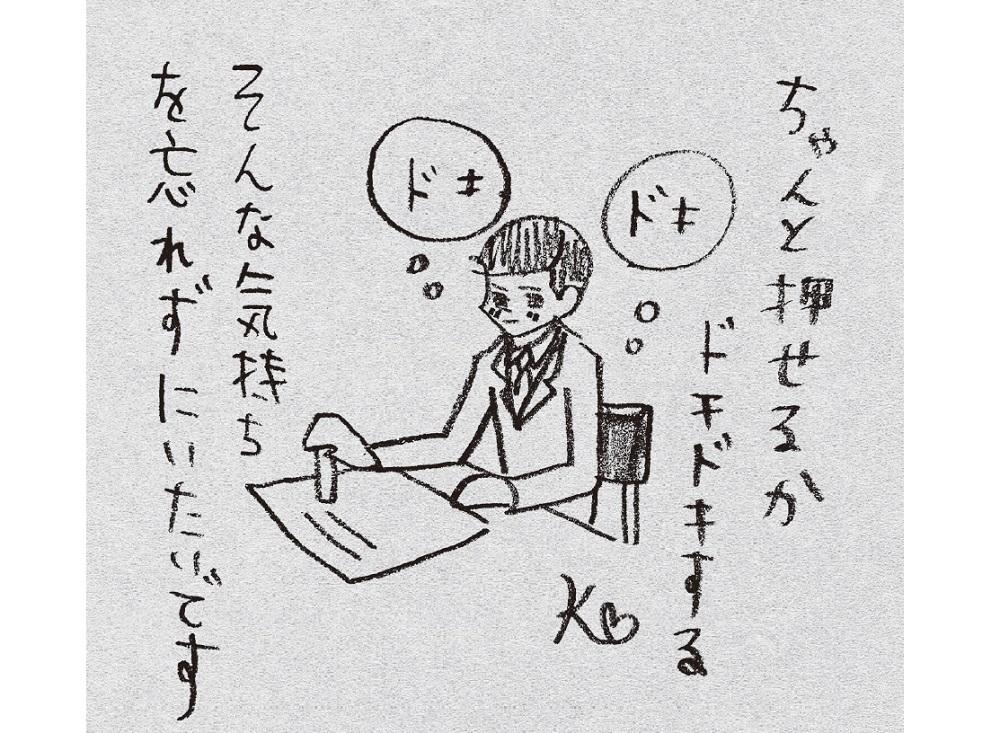 ちゃんと押せるか
ドキドキする
ドキ
ドキ
そんな気持ち
を忘れずにいたいです
K